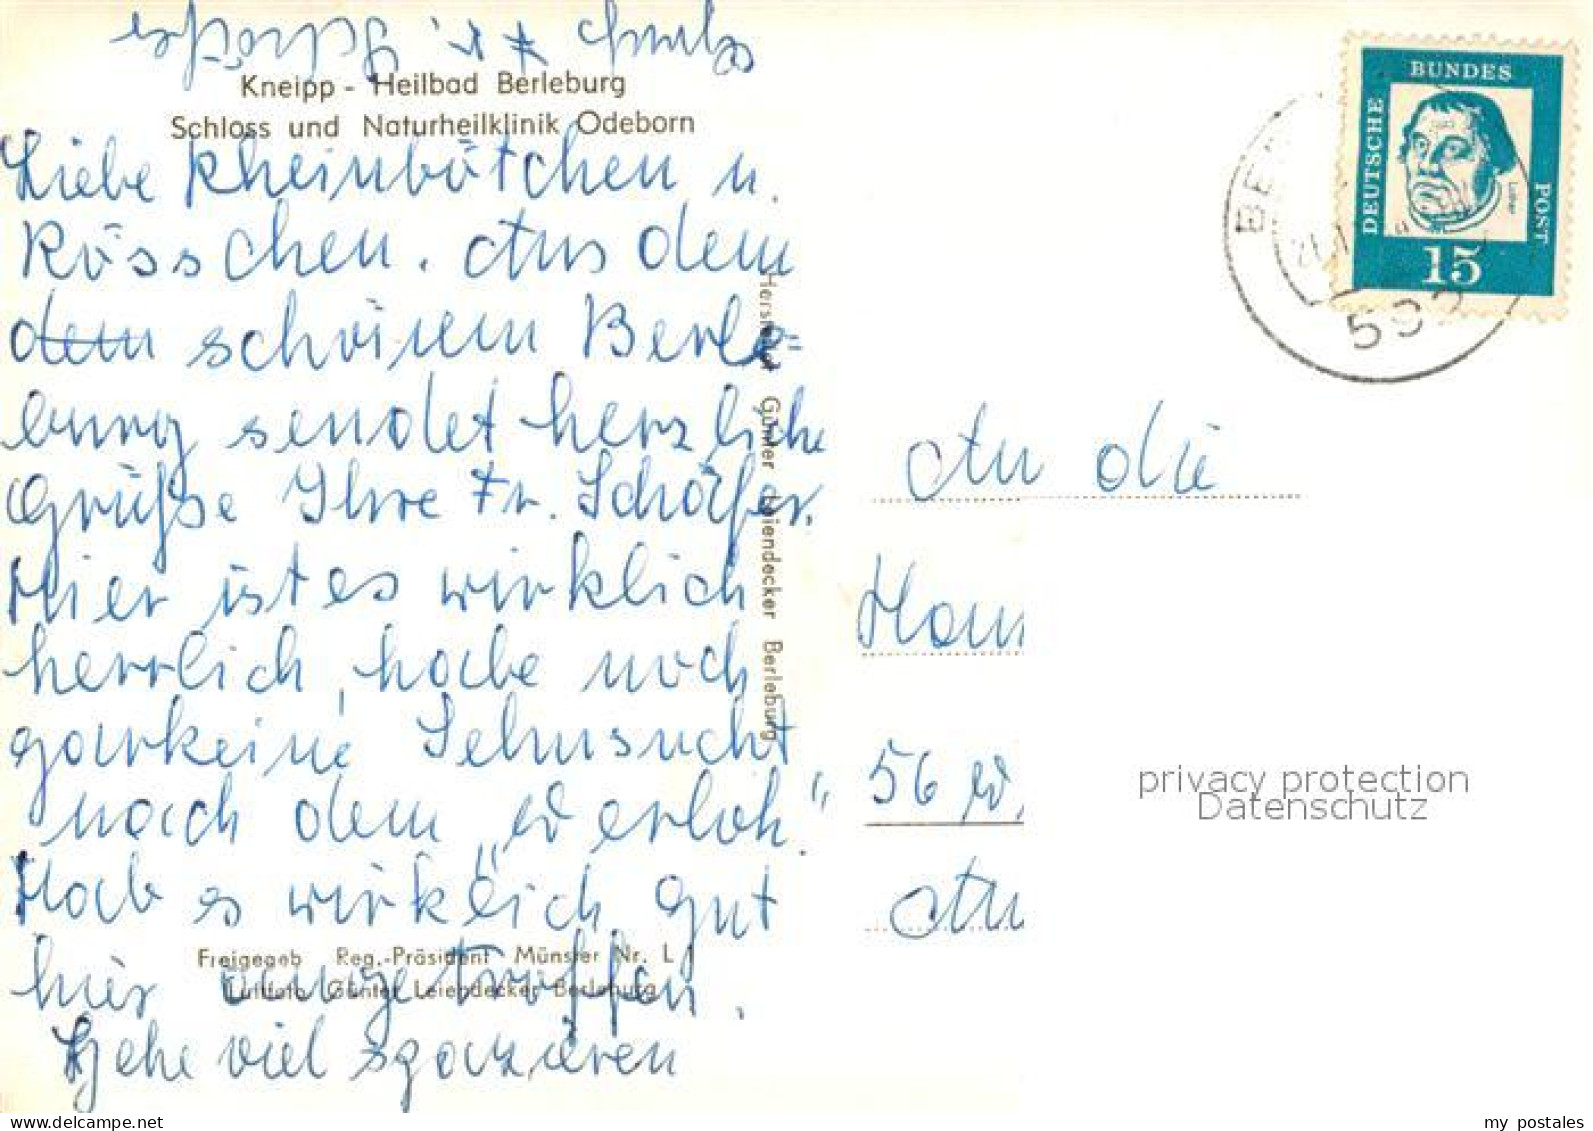 Kneipp - Heilbad Berleburg
Schloss und Naturheilklinik Odeborn
Liebe Rheinbötchen u.
Rösschen. Aus dem
dem schönen Berle=
burg sendet herzliche
Grüße Ihre Fr. Schäfer.
Hier ist es wirklich
herrlich, habe noch
garkeine Sehnsucht
nach dem „Werloh."
Hab es wirklich gut
hier angetroffen.
Gehe viel spazieren
Freigegeb Reg.-Präsident Münster Nr. L
Luftfoto Günter Leiendecker Berleburg
Hersteller Günter Leiendecker Berleburg
DEUTSCHE
BUNDES
POST
Luther
15
An die
56 W.
privacy protection
Datenschutz
www.delcampe.net
my_postales